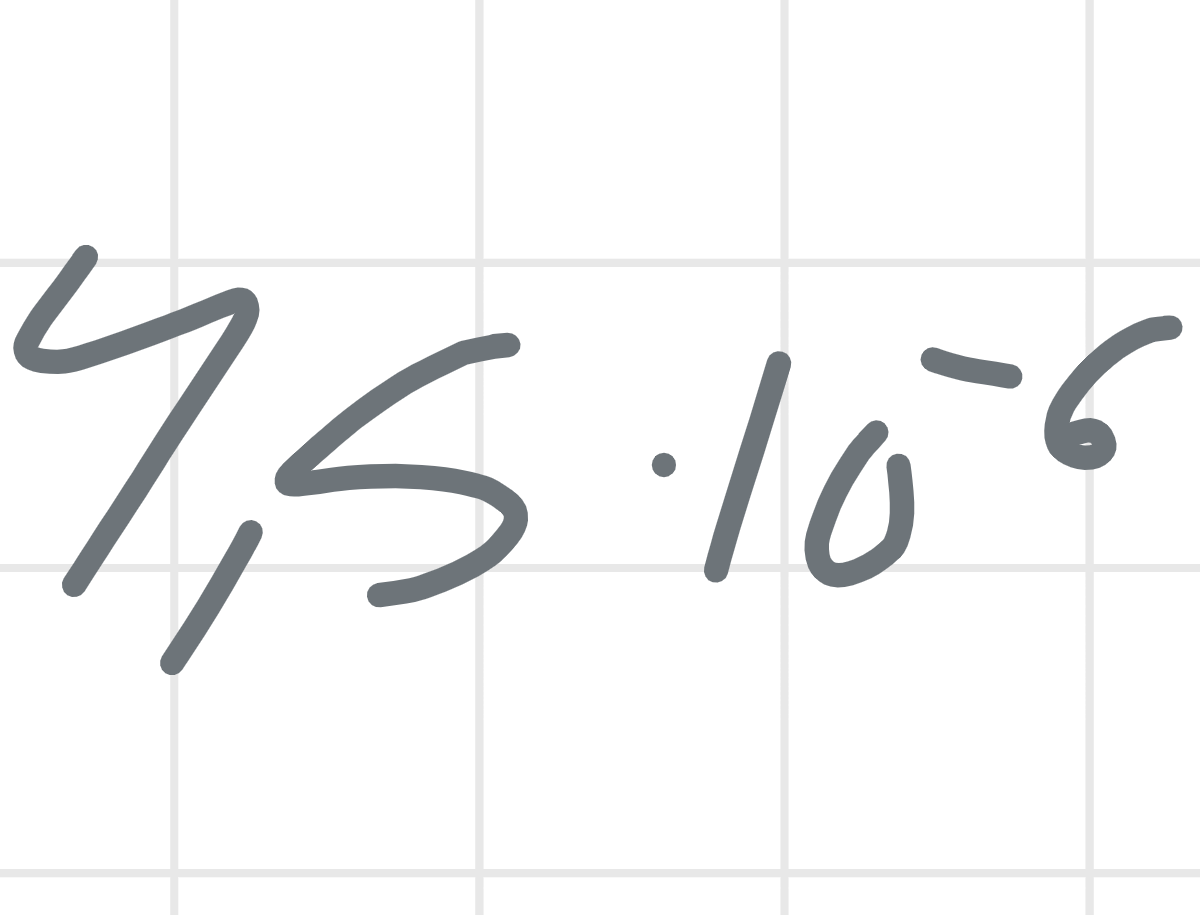 4,5 · 10⁻⁶